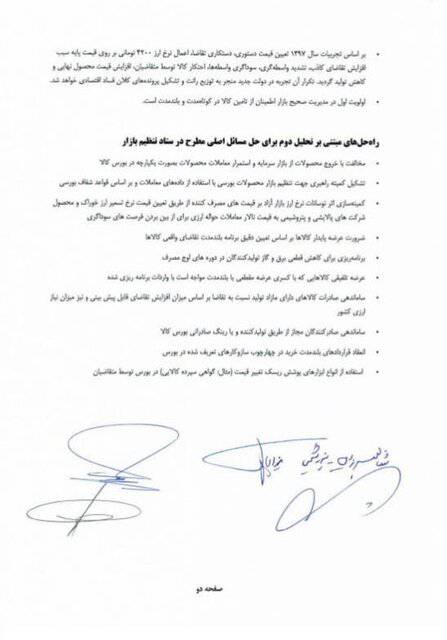 بر اساس تجربیات سال ۱۳۹۷ تعیین قیمت دستوری، دستکاری تقاضا، اعمال نرخ ارز ۴۲۰۰ تومانی بر روی قیمت پایه سبب
افزایش تقاضای کاذب، تشدید واسطه‌گری، سوداگری واسطه‌ها، احتکار کالا توسط متقاضیان، افزایش قیمت محصول نهایی و
کاهش تولید گردید. تکرار آن تجربه در دولت جدید منجر به توزیع رانت و تشکیل پرونده‌های کلان فساد اقتصادی خواهد شد.
اولویت اول در مدیریت صحیح بازار اطمینان از تامین کالا در کوتاه‌مدت و بلندمدت است.
راه‌حل‌های مبتنی بر تحلیل دوم برای حل مسائل اصلی مطرح در ستاد تنظیم بازار
مخالفت با خروج محصولات از بازار سرمایه و استمرار معاملات محصولات بصورت یکپارچه در بورس کالا
تشکیل کمیته راهبری جهت تنظیم بازار محصولات بورسی با استفاده از داده‌های معاملات و بر اساس قواعد شفاف بورسی
کمینه‌سازی اثر نوسانات نرخ ارز بازار آزاد بر قیمت های مصرف کننده از طریق تعیین قیمت نرخ تسعیر ارز خوراک و محصول
شرکت های پالایشی و پتروشیمی به قیمت تالار معاملات حواله ارزی برای از بین بردن فرصت های سوداگری
ضرورت عرضه پایدار کالاها بر اساس تعیین دقیق برنامه بلندمدت تقاضای واقعی کالاها
برنامه‌ریزی برای کاهش قطعی برق و گاز تولیدکنندگان در دوره های اوج مصرف
عرضه تلفیقی کالاهایی که با کسری عرضه مقطعی یا بلندمدت مواجه است با واردات برنامه ریزی شده
ساماندهی صادرات کالاهای دارای مازاد تولید نسبت به تقاضا بر اساس میزان افزایش تقاضای قابل پیش بینی و نیز میزان نیاز
ارزی کشور
ساماندهی صادرکنندگان مجاز از طریق تولیدکننده و یا رینگ صادراتی بورس کالا
انعقاد قراردادهای بلندمدت خرید در چهارچوب سازوکارهای تعریف شده در بورس
استفاده از انواع ابزارهای پوشش ریسک تغییر قیمت (مثال: گواهی سپرده کالایی) در بورس توسط متقاضیان
صفحه دو